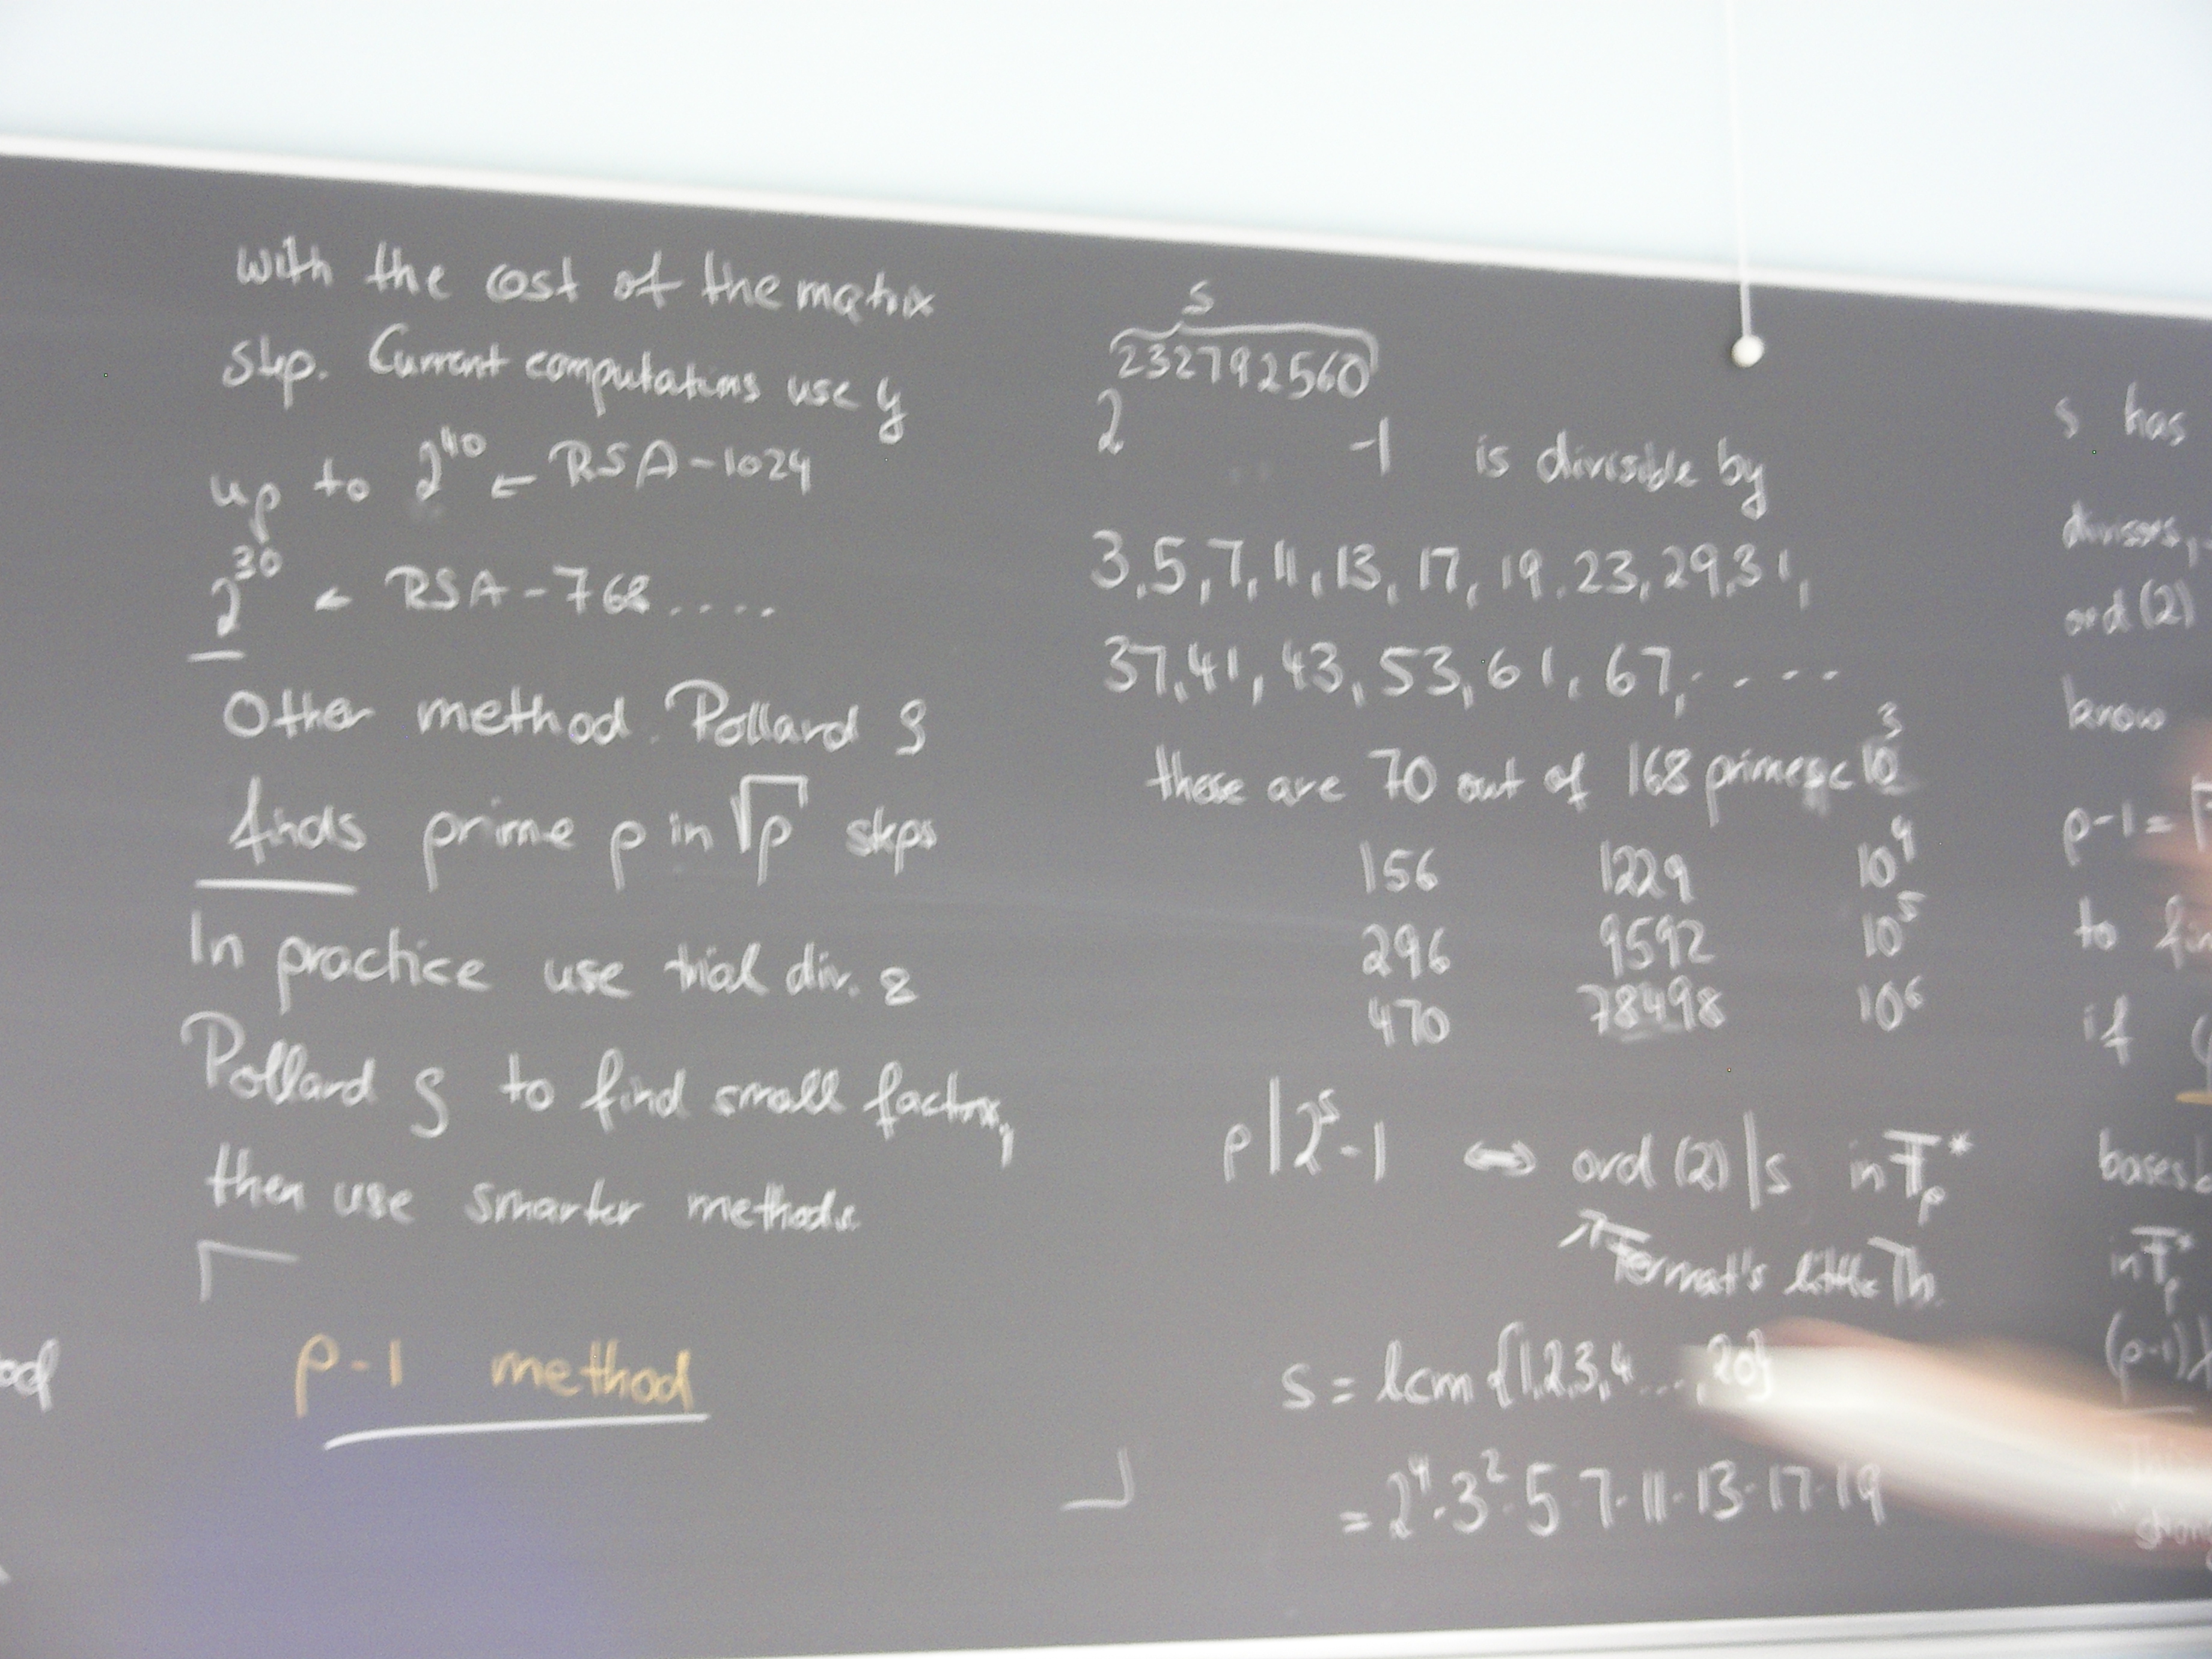 with the cost of the matrix
step. Current computations use y
up to 2^40 ← RSA-1024
2^30 ← RSA-768....
Other method. Pollard ρ
finds prime p in √p steps
In practice use trial div. &
Pollard ρ to find small factors,
then use smarter methods.
p-1 method
s
2^232792560 -1 is divisible by
3,5,7,11,13,17,19,23,29,31,
37,41,43,53,61,67,....
these are 70 out of 168 primes < 10^3
156 1229 10^4
296 9592 10^5
470 78498 10^6
p|2^s-1 ⇔ ord(2)|s in F_p^*
↗ Fermat's little Th.
s = lcm{1,2,3,4...,20}
= 2^4·3^2·5·7·11·13·17·19
s has
divisors,
ord(2)
know
p-1=
to
if
bases
in F_p^*
(p-1)